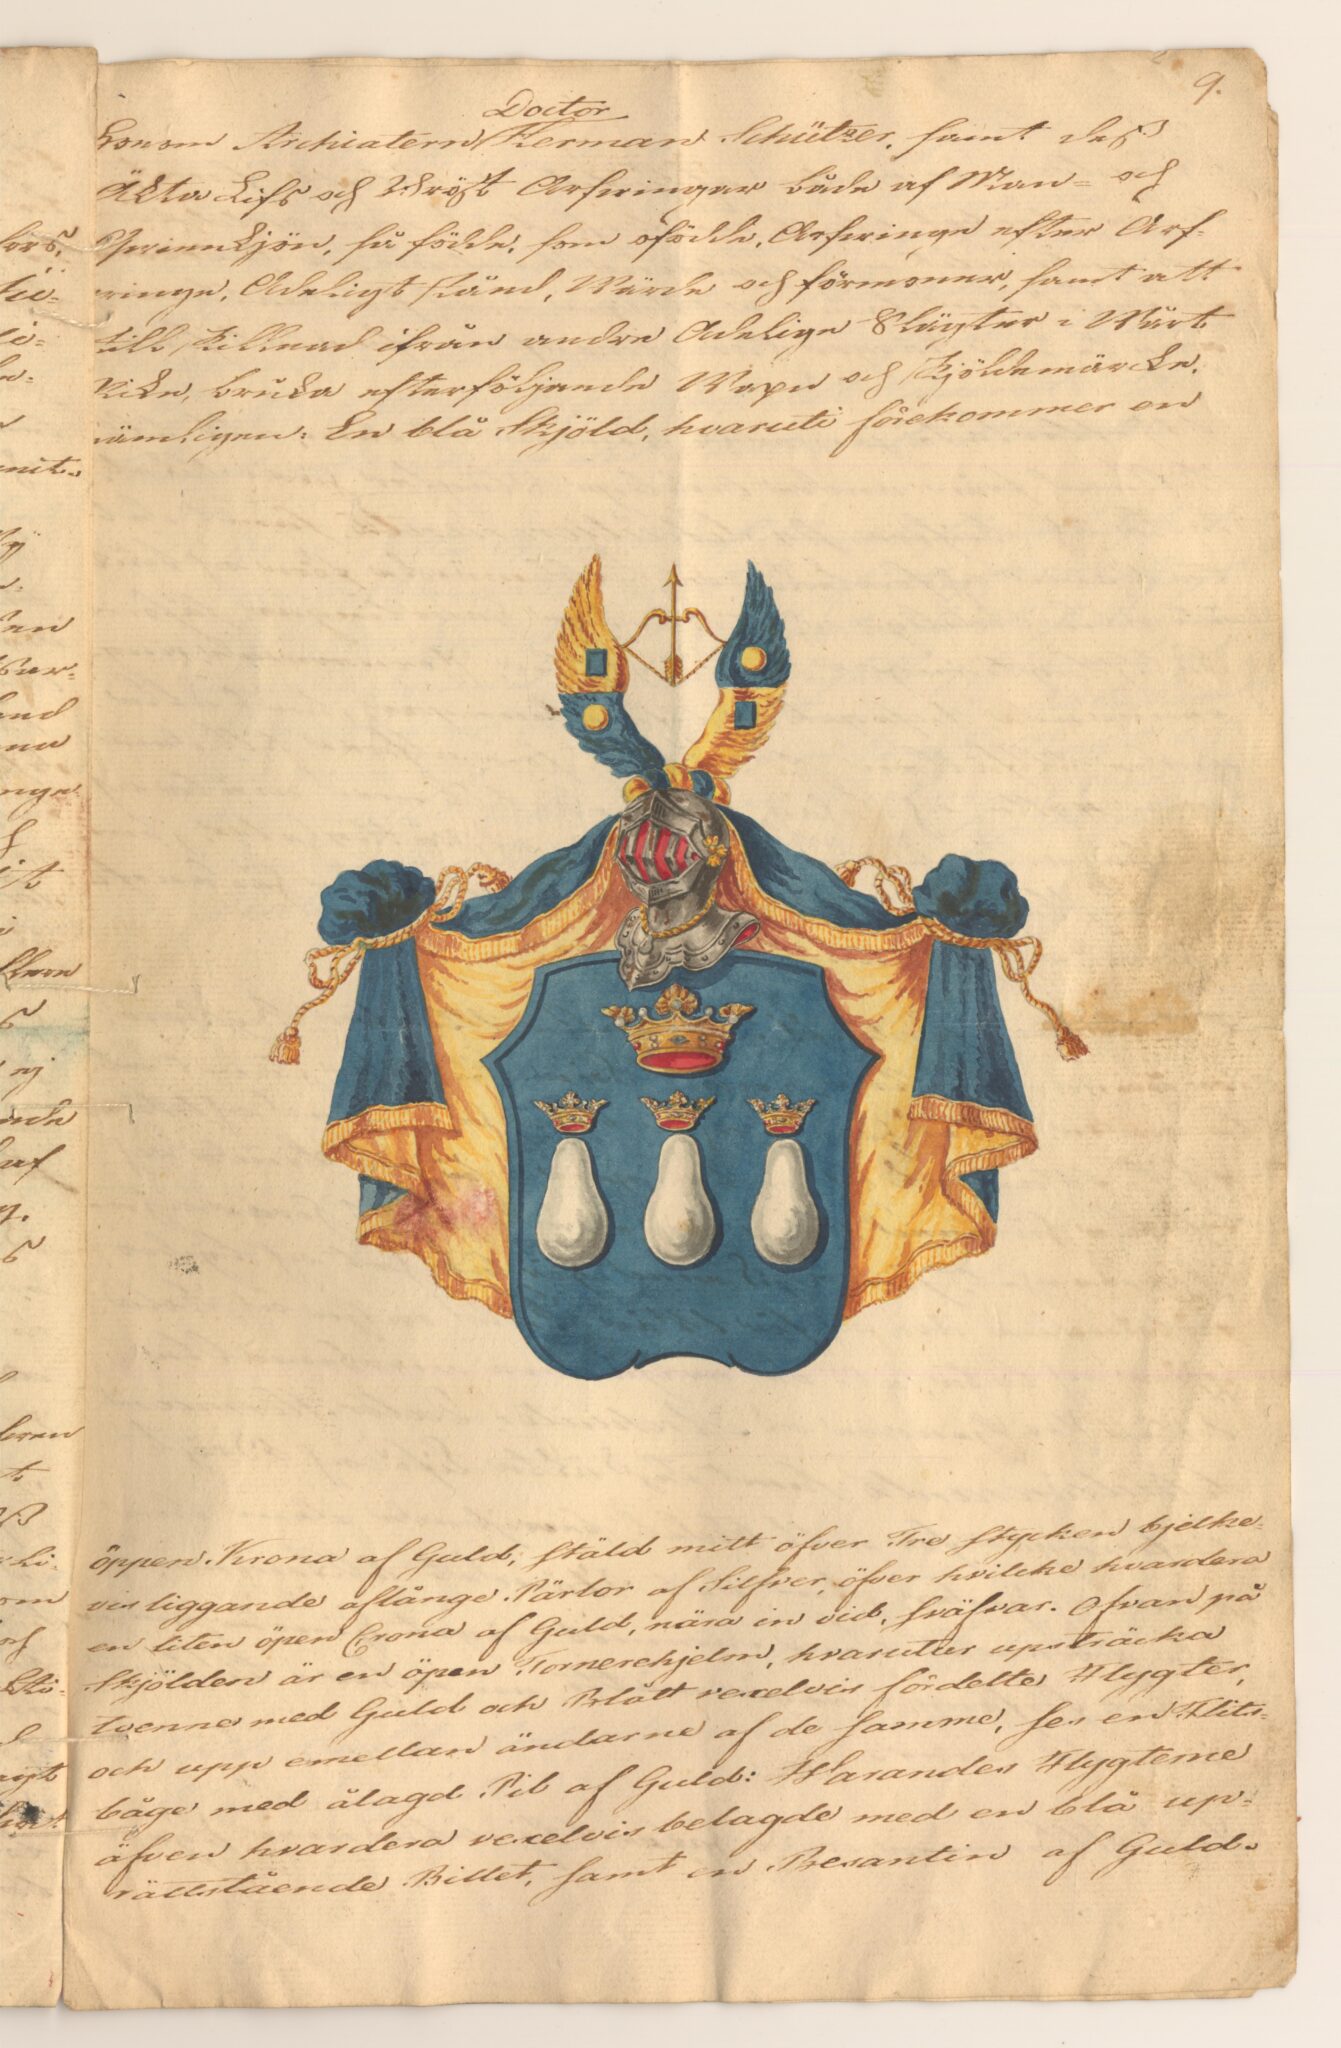 9.
Doctor
honom Archiatern Herman Schützer, samt des
Äkta Lifs och Bröst Arfvingar både af Man- och
Qvinnkjön, så födde, som ofödde, Arfvinge efter Arf-
vinge, Adeligt stånd, Wärde och förmoner, samt att
till skillnad ifrån andre Adelige Slägter i Wårt
Rike, bruka efterföljande Wapn och Skjöldemärcke,
nämligen: En blå Skjöld, hvaruti förekommer en
öppen Krona af Guld, stäld mitt öfver Tre stycken bjelke-
vis liggande aflånge Pärlor af Silfver, öfver hvilcke hvardera
en liten öpen Crona af Guld, nära in vid, sväfvar. Ofvan på
Skjölden är en öpen Tornerehjelm, hvarutur upsträcka
tvenne med Guld och Blått vexelvis fördelte Flygter,
och upp emellan ändarne af de samme, ses en Flits-
båge med ålagd Pil af Guld: Warandes Flygterne
äfven hvardera vexelvis belagde med en blå up-
rättstående Billet, samt en Besantin af Guld.